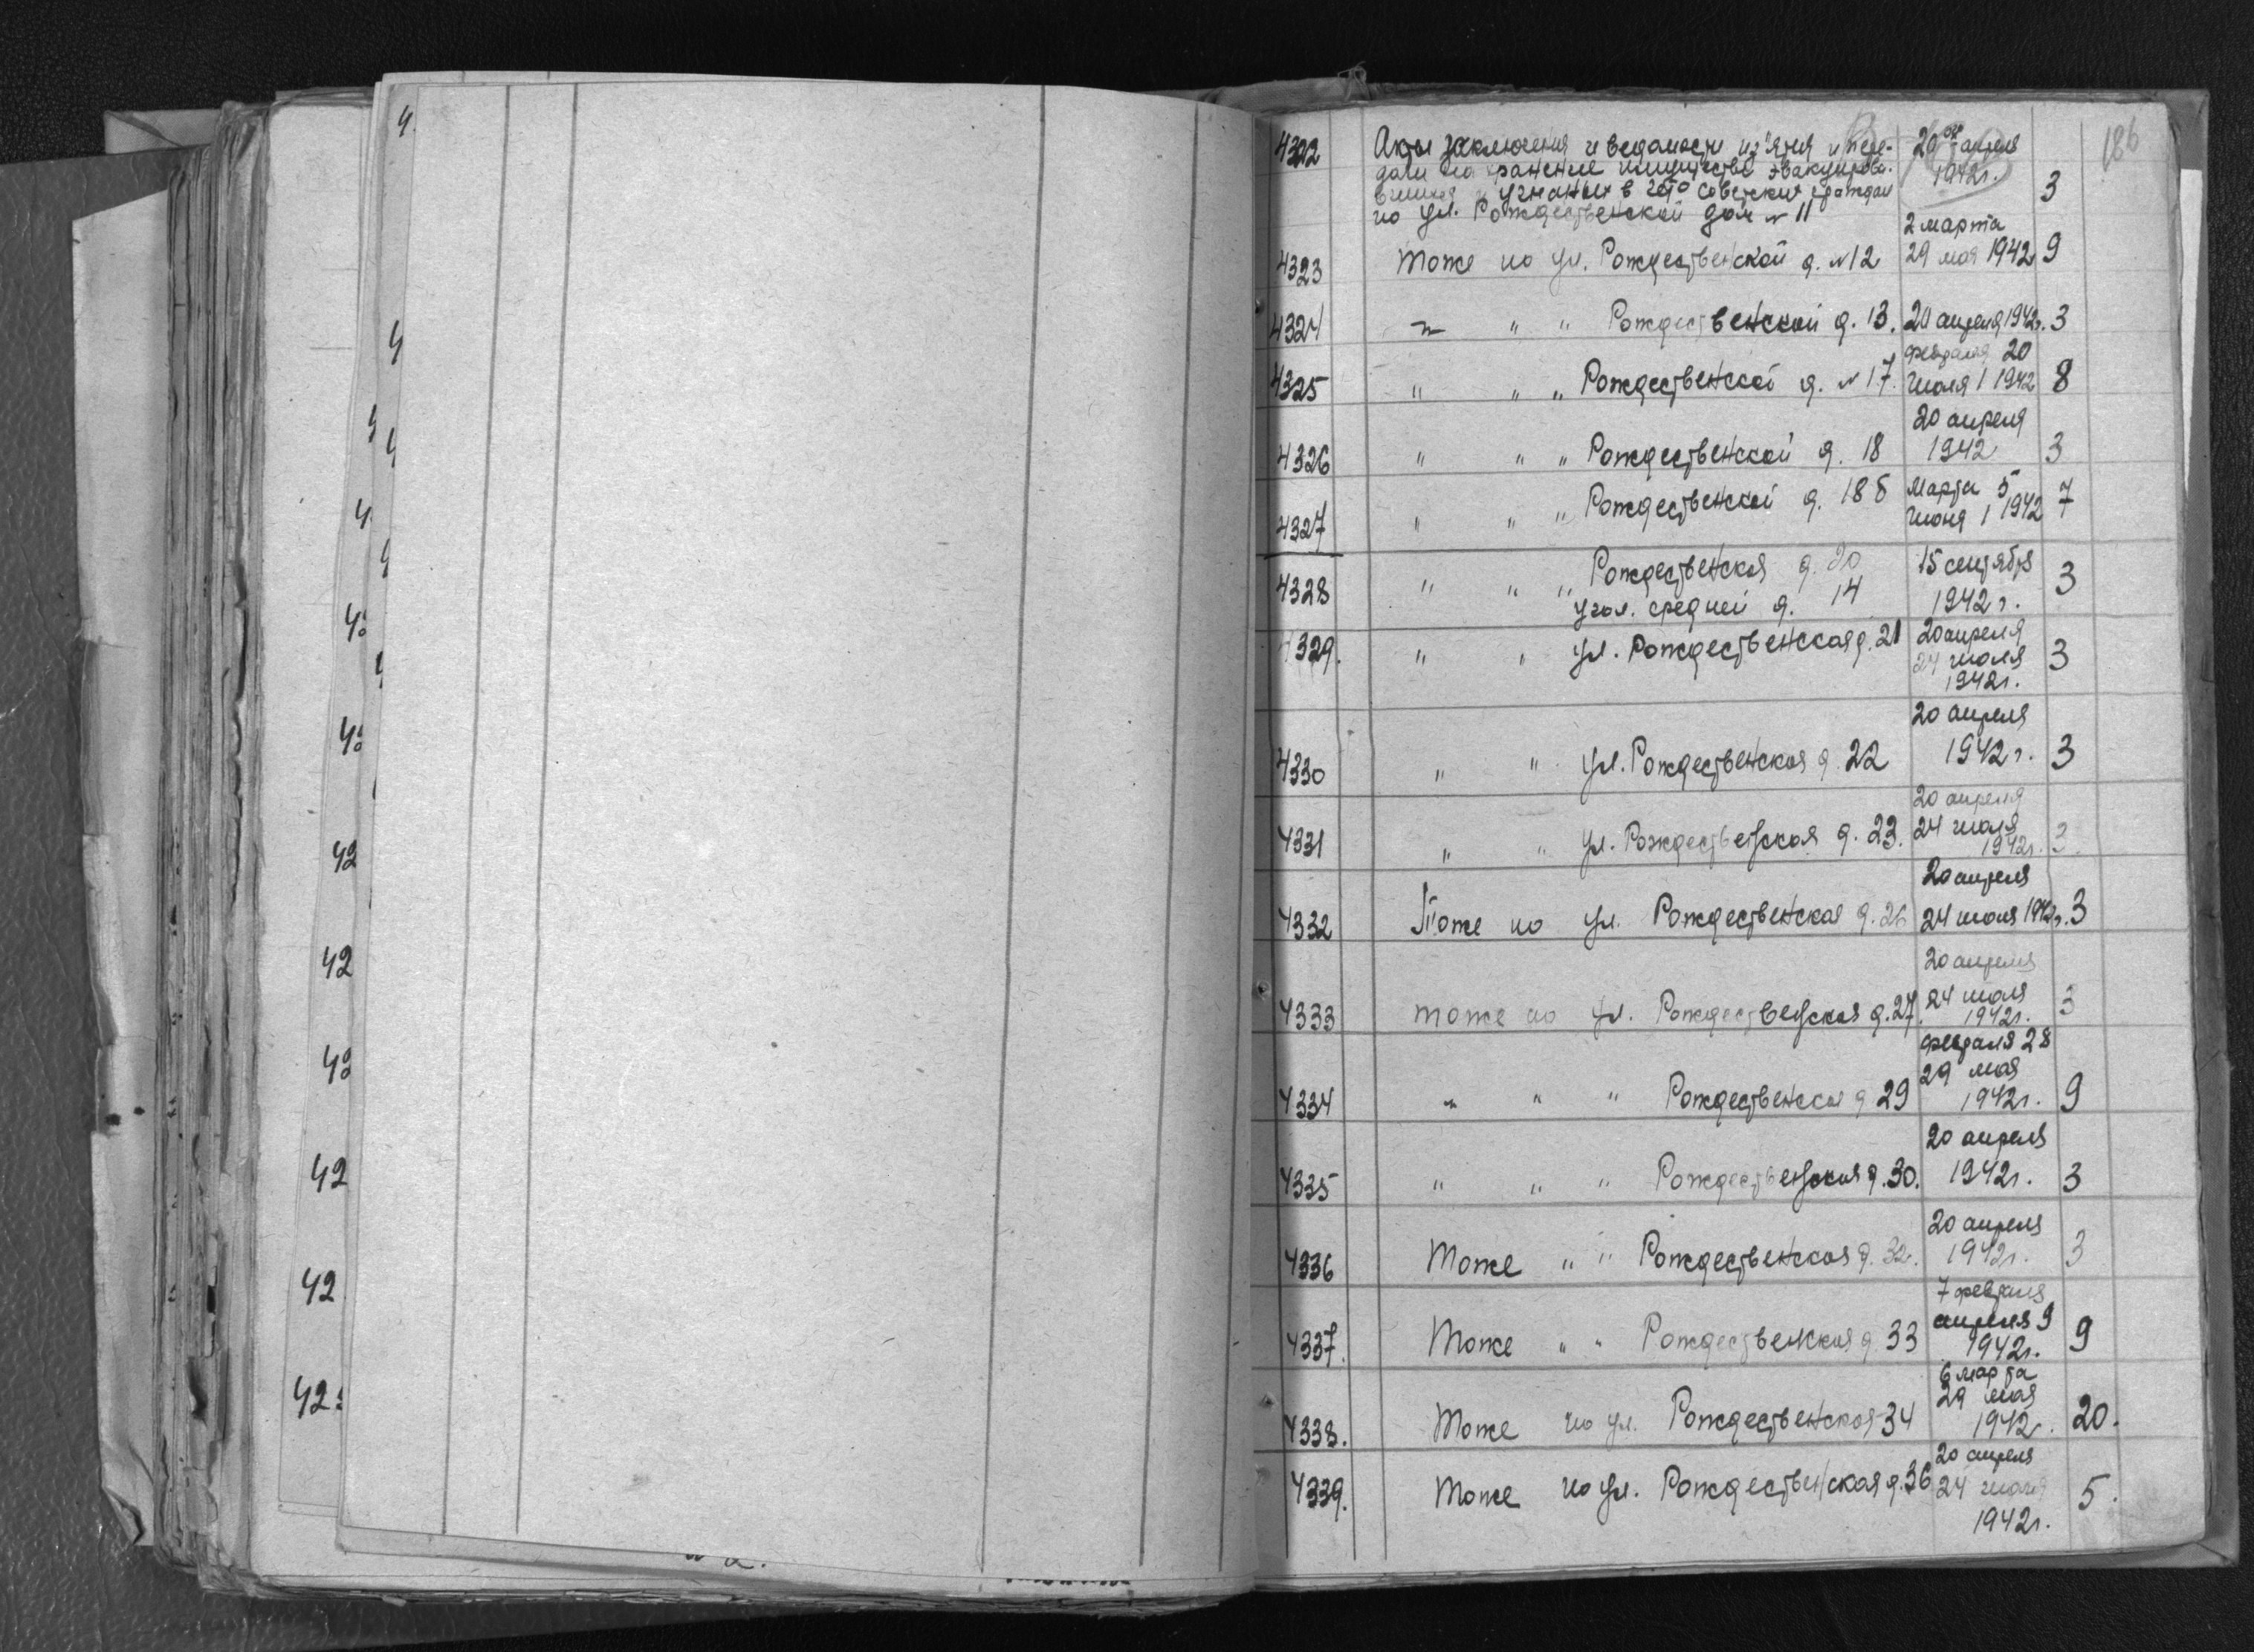 186
4322 Акты заключения и ведомости из'ятия и пере- 20 апреля
дачи на хранение имущества эвакуирова- 1942г.
вшихся и угнаных в гетто советских граждан 3
по ул. Рождественской дом № 11
2 марта
4323 Тоже по ул. Рождественской д. № 12 29 мая 1942 9
4324 " " " Рождественской д. 13. 20 апреля 1942г. 3
февраля 20
4325 " " " Рождественской д. № 17. Июля 1 1942 8
20 апреля
4326 " " " Рождественской д. 18 1942 3
Марта 5
4327 " " " Рождественской д. 18 б Июня 1 1942 7
4328 " " " Рождественская д. 20 15 сентября 3
угол. средней д. 14 1942 г.
4329. " " ул. Рождественская д. 21 20 апреля
24 июля 3
1942г.
20 апреля
4330 " " ул. Рождественская д. 22 1942 г. 3
20 апреля
4331 " " ул. Рождественская д. 23. 24 июля
1942г. 3
20 апреля
4332 Тоже по ул. Рождественская д. 26 24 июля 1942г. 3
20 апреля
4333 тоже по ул. Рождественская д. 27. 24 июля 3
1942г.
февраля 28
29 мая
4334 " " " Рождественская д 29 1942г. 9
20 апреля
4335 " " " Рождественская д. 30. 1942г. 3
20 апреля
4336 Тоже " " Рождественская д. 32. 1942г. 3
7 февраля
апреля 9
4337. Тоже " " Рождественская д 33 1942г. 9
6 марта
29 мая
4338. Тоже по ул. Рождественская 34 1942. 20.
20 апреля
4339. Тоже по ул. Рождественская д. 36 24 июля 5.
1942г.